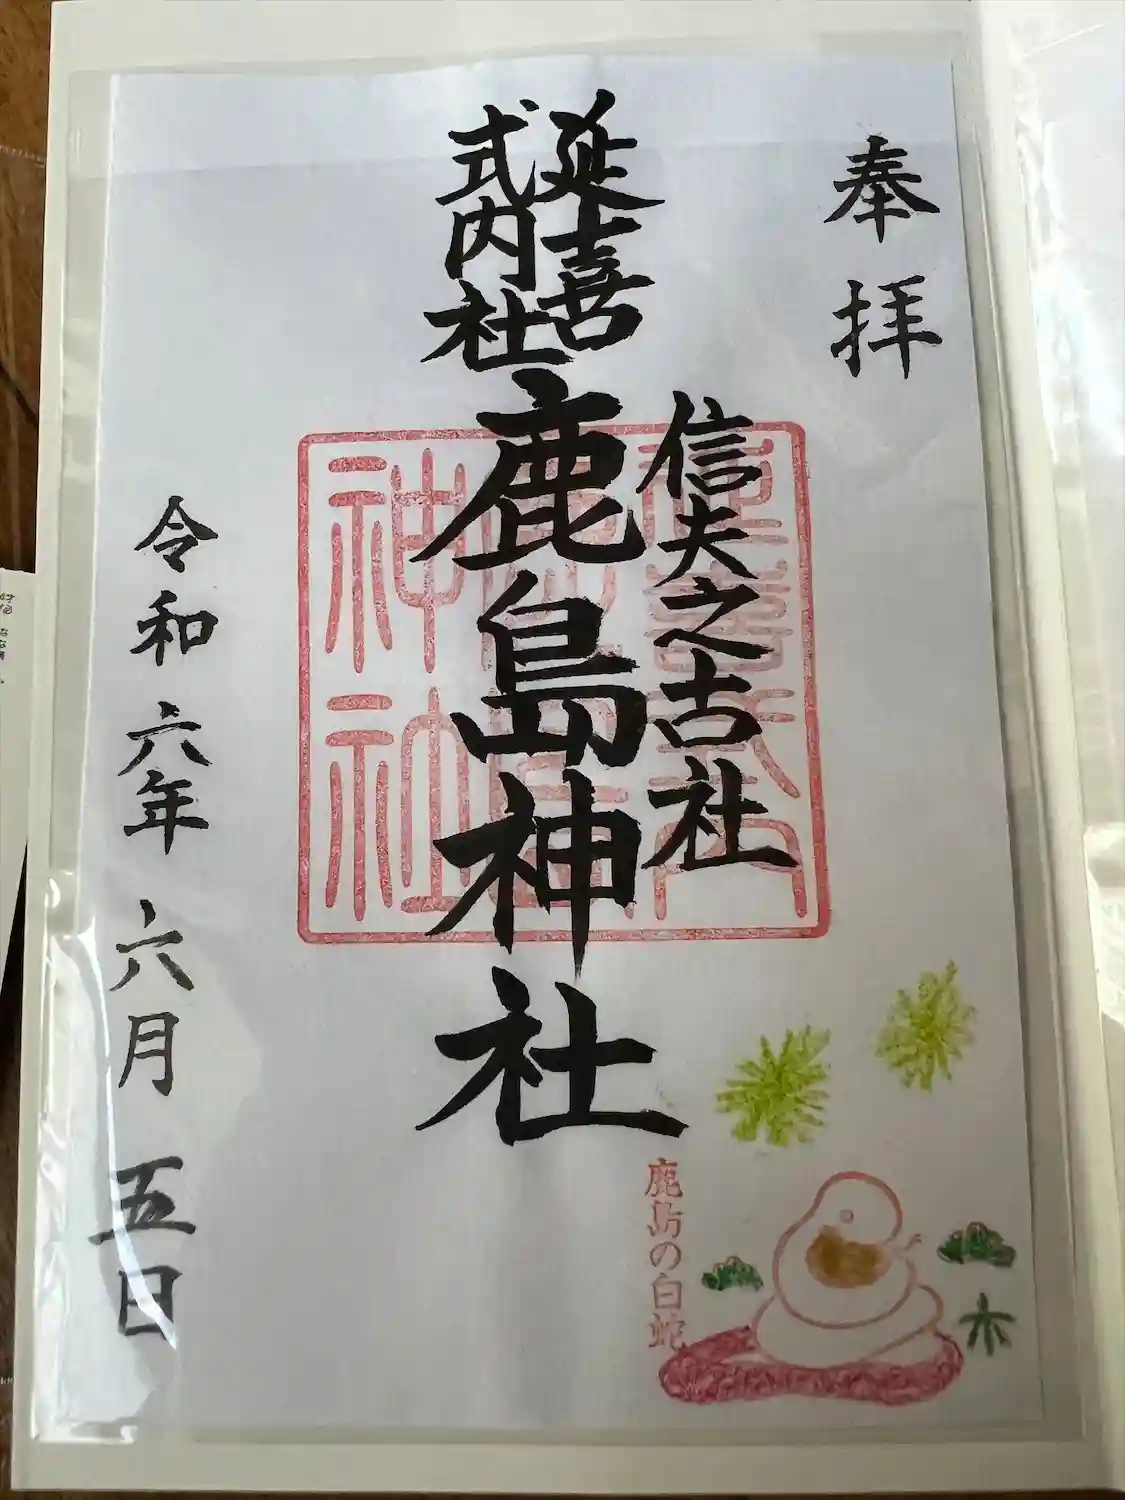 奉拝
信夫之古社
延喜
式内社
鹿島神社
令和六年六月五日
鹿島の白蛇
神社